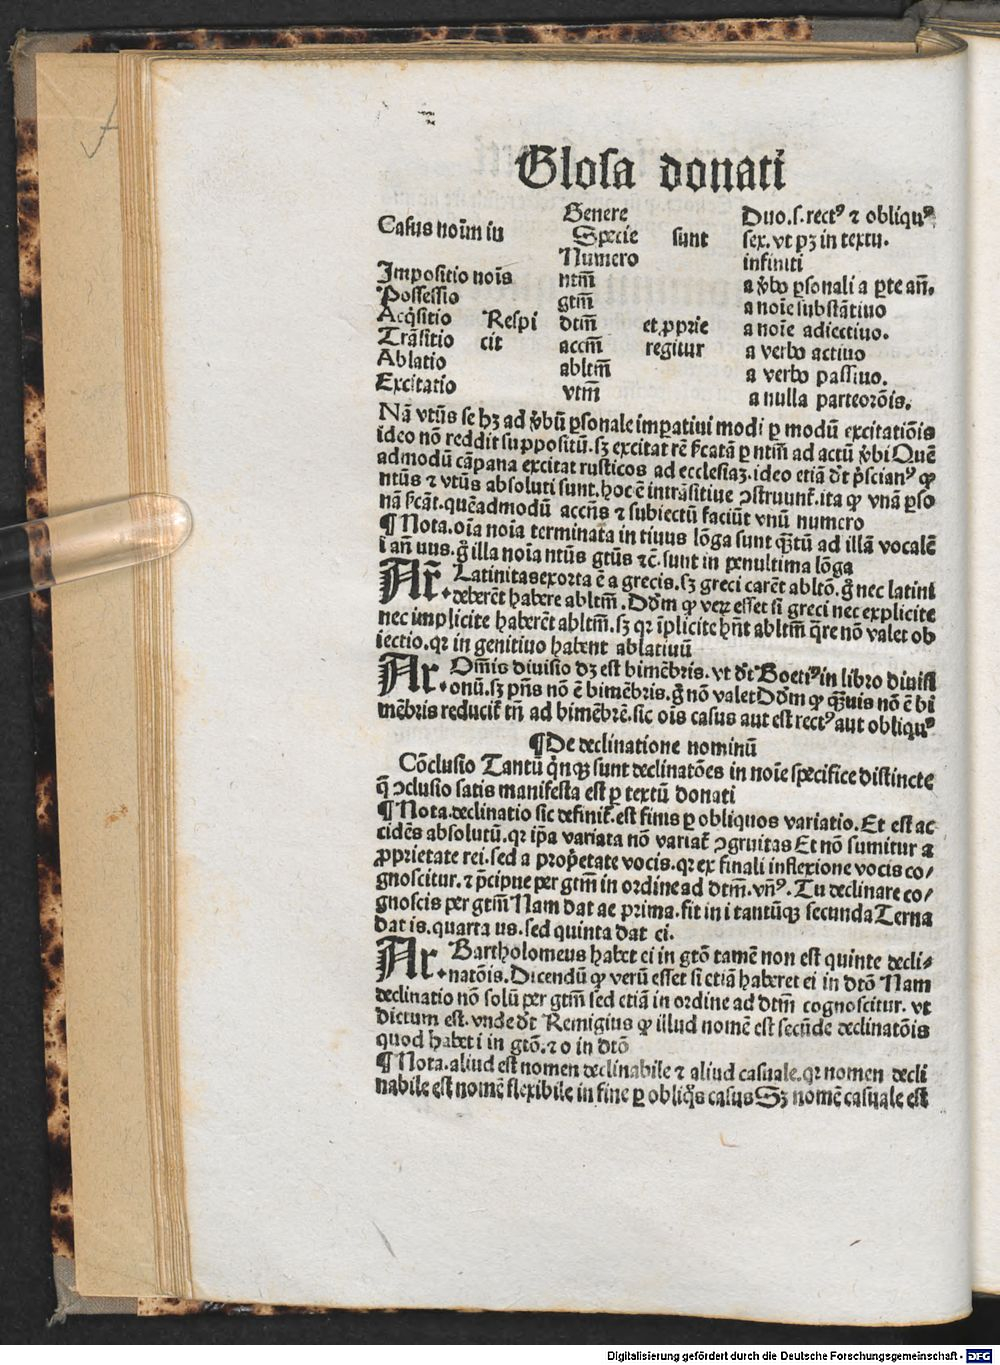 Glosa donati
Genere Duo.s.rectꝰ ⁊ obliquꝰ
Casus noīm in Specie sunt sex.vt pꝫ in textu.
Numero infiniti
Impositio nois ntm̄ a v̓bo ꝑsonali a ꝑte an̄.
Possessio gtm̄ a noīe substātiuo
Acq̇sitio Respi dtm̄ et ꝓprie a noīe adiectiuo.
Trāsitio cit accm̄ regitur a verbo actiuo
Ablatio abltm̄ a verbo passiuo.
Excitatio vtm̄ a nulla parte orōis.
Nā vtūs se hꝫ ad v̓bū ꝑsonale imꝑatiui modi ꝑ modū excitatiōis
ideo nō reddit suppositū.sꝫ excitat rē ſcatā ꝑ ntm̄ ad actū v̓bi Quē
admodū cāpana excitat rusticos ad ecclesiaꝫ.ideo etiā dt̄ p̓scianꝰ ꝙ
ntūs ⁊ vtūs absoluti sunt.hoc ē intrāsitiue ꝯstruunt̄.ita ꝙ vnā ꝑso
nā ſcāt.quēadmodū accn̄s ⁊ subiectū faciūt vnū numero
¶ Nota.oīa noīa terminata in tiuus lōga sunt q̄ꝫtū ad illā vocalē
i an̄ uus.g̊ illa noīa ntūs gtūs ⁊c̄.sunt in penultima lōga
Ar̄. Latinitas exorta ē a grecis.sꝫ greci carēt abltō.g̊ nec latini
deberēt habere abltm̄.Dd̄m ꝙ veꝝ esset si greci nec explicite
nec implicite haberēt abltm̄.sꝫ qꝛ īplicite hn̄t abltm̄ q̄re nō valet ob
iectio.qꝛ in genitiuo habent ablatiuū
Ar. Om̄is diuisio dꝫ est bimēbris.vt dt̄ Boetiꝰ in libro diuisi
onū.sꝫ pn̄s nō ē bimēbris.g̊ nō valet Dd̄m ꝙ q̄ꝫuis nō ē bi
mēbris reducit̄ tn̄ ad bimēbrē.sic oīs casus aut est rectꝰ aut obliquꝰ
¶ De declinatione nominū
Cōclusio Tantū q̇nqꝫ sunt declinatōes in noīe specifice distincte
q̄ ꝯclusio satis manifesta est ꝑ textū donati
¶ Nota.declinatio sic definit̄.est finis ꝑ obliquos variatio.Et est ac
cidēs absolutū.qꝛ ip̄a variata nō variat̄ ꝯgruitas Et nō sumitur a
ꝓprietate rei.sed a prop̓etate vocis.qꝛ ex finali inflexione vocis co/
gnoscitur.⁊ p̄cipue per gtm̄ in ordine ad dtm̄.vn̄ꝰ.Tu declinare co/
gnoscis per gtm̄ Nam dat ae prima.fit in i tantūqꝫ secunda Terna
dat is.quarta us.sed quinta dat ei.
Ar. Bartholomeus habet ei in gtō tamē non est quinte decli⸗
natōis.Dicendū ꝙ verū esset si etiā haberet ei in dtō Nam
declinatio nō solū per gtm̄ sed etiā in ordine ad dtm̄ cognoscitur.vt
dictum est.vnde dt̄ Remigius ꝙ illud nomē est secūde declinatōis
quod habet i in gtō.⁊ o in dtō
¶ Nota.aliud est nomen declinabile ⁊ aliud casuale.qꝛ nomen decli
nabile est nomē flexibile in fine ꝑ obliq̊s casus Sꝫ nomē casuale est
Digitalisierung gefördert durch die Deutsche Forschungsgemeinschaft - DFG